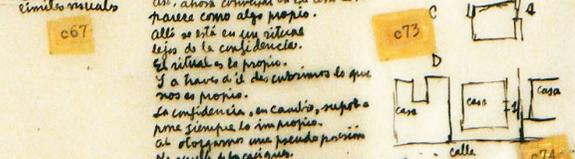 símiles visuales
c67
parece como algo propio.
Allá se está en un ritual
lejos de la confidencia.
El ritual es lo propio.
Y a través de él descubrimos lo que
nos es propio.
La confidencia, en cambio, supo
pone siempre lo impropio.
al otorgarnos una pseudo posesión
c73
C
D
casa
casa
casa
calle
c74